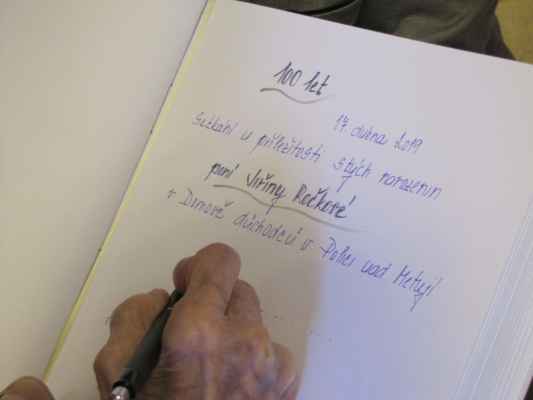 100 let
17. dubna 2019
Setkání u příležitosti stých narozenin
paní Jiřiny Ročkové
v Domově důchodců v Polici nad Metují